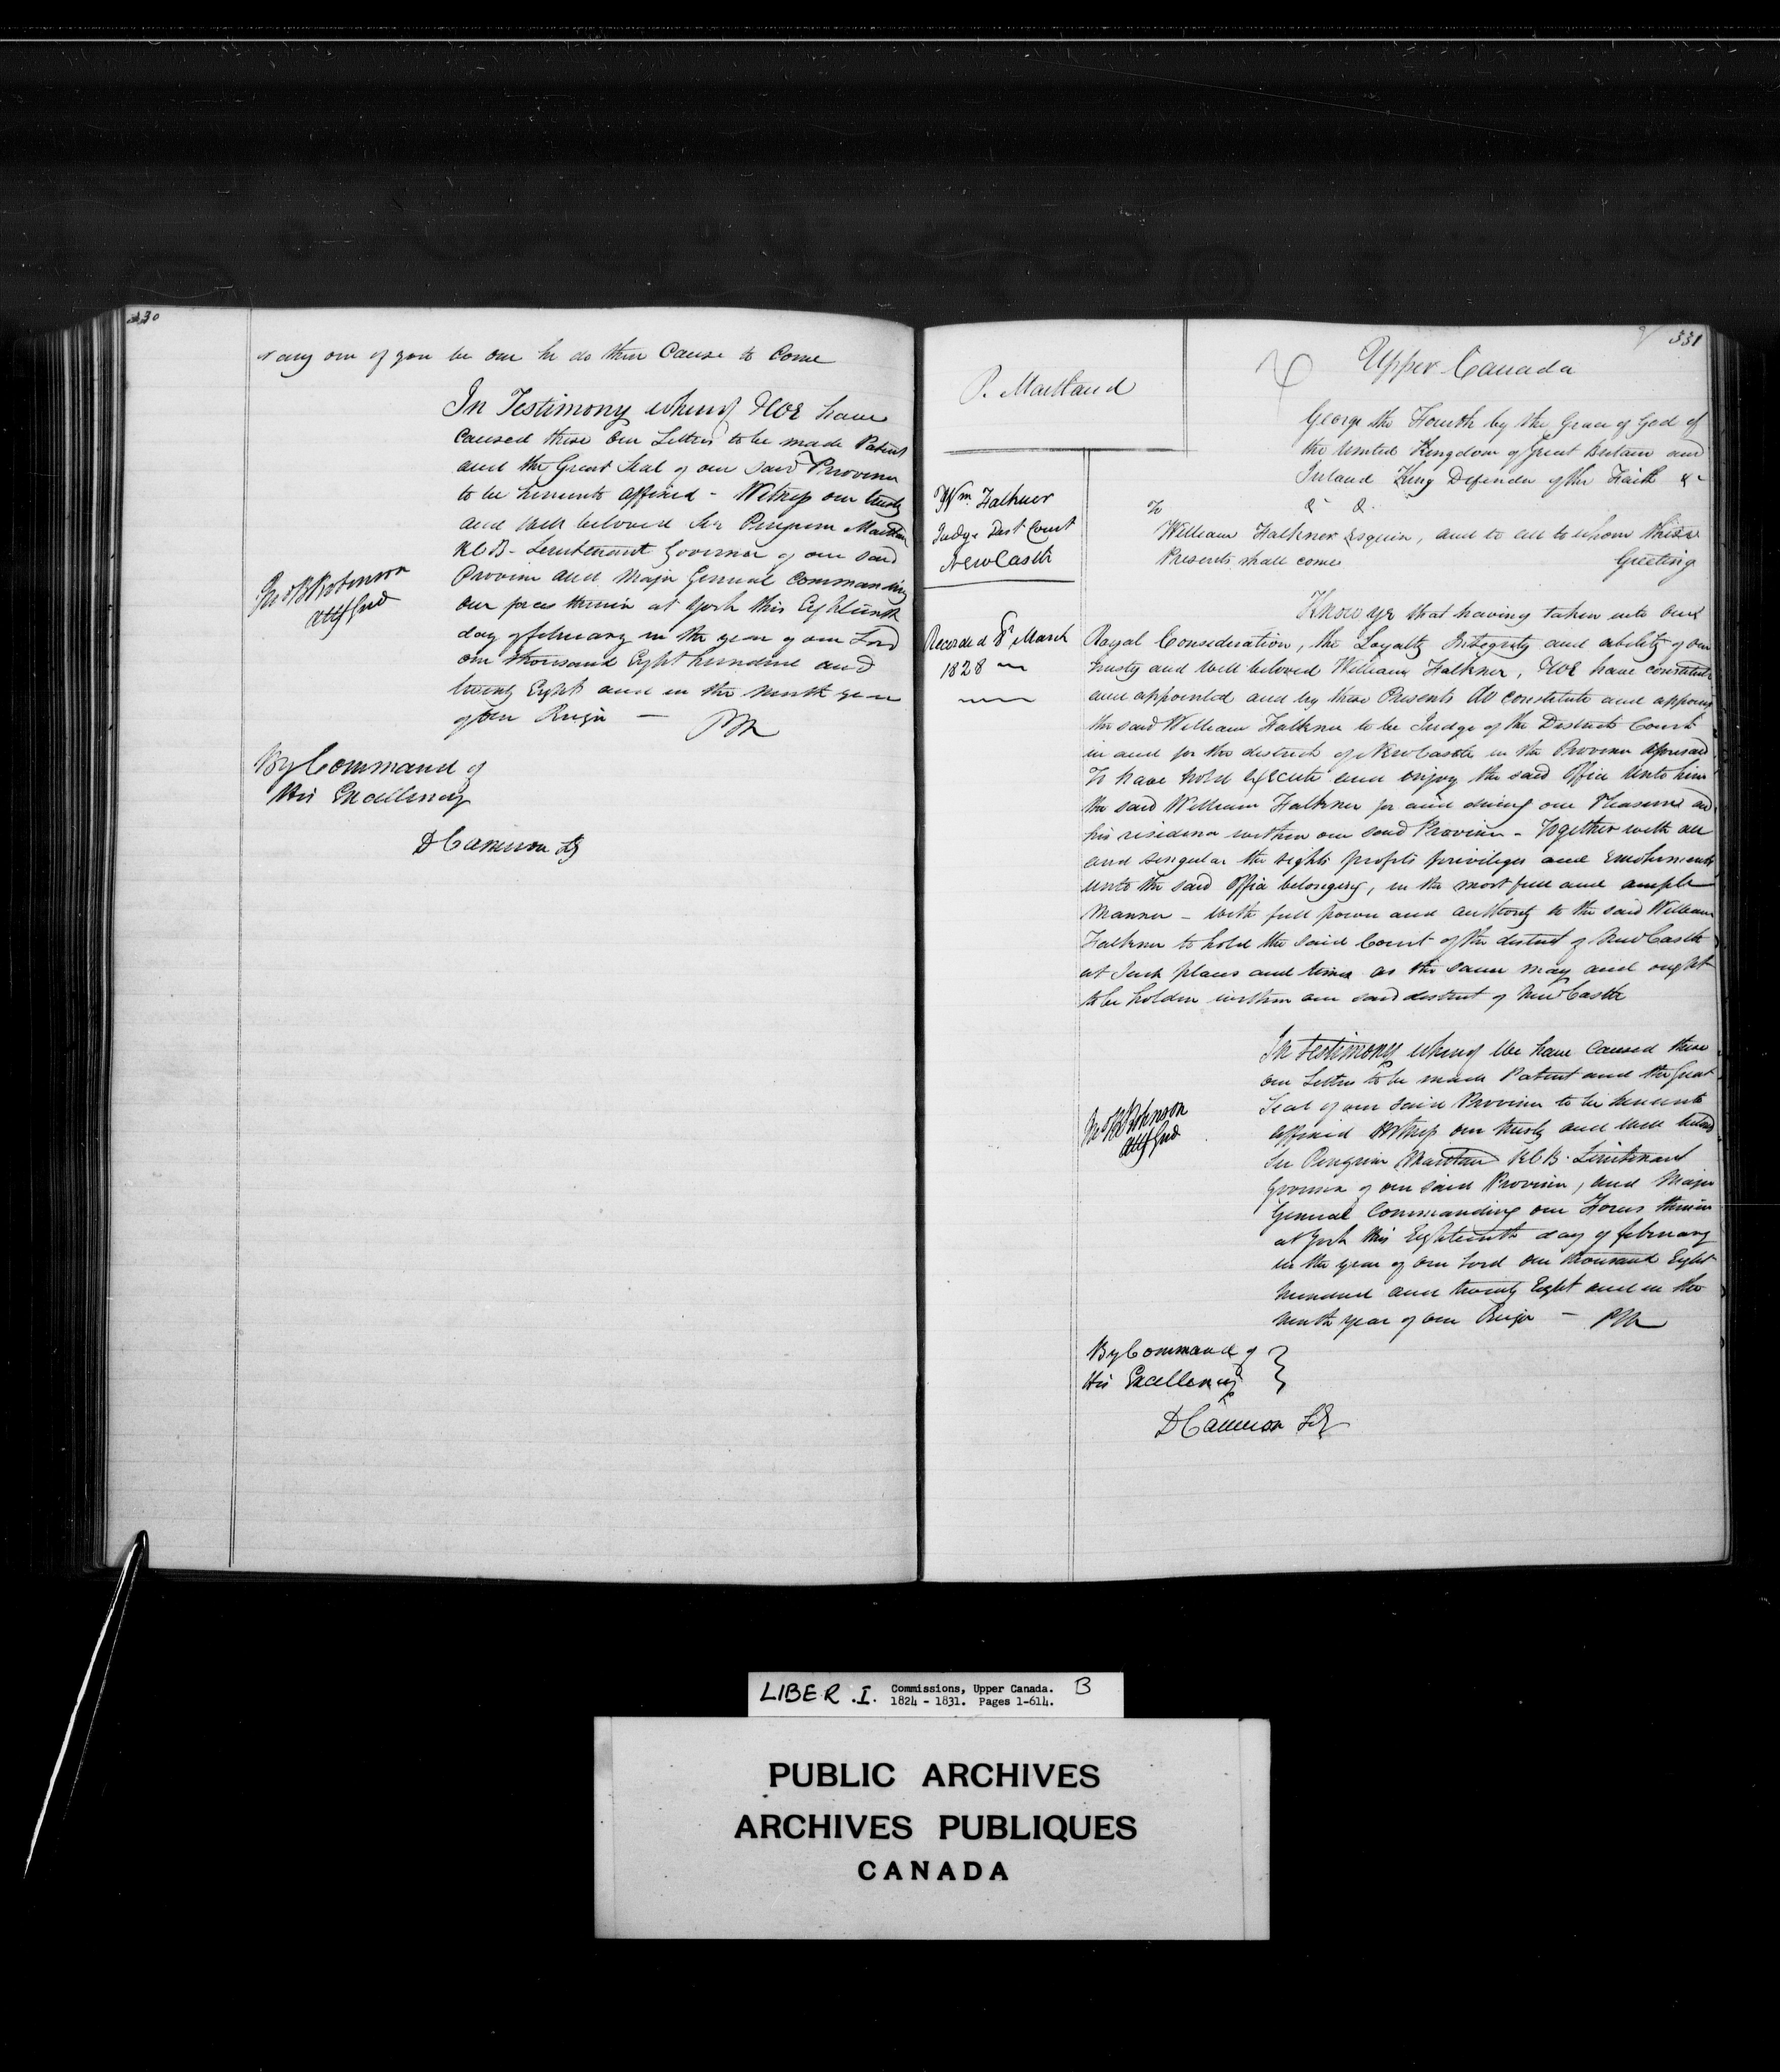 330
or any one of you be one he do then Cause to Come
In Testimony whereof We have
caused these our Letters to be made Patent
and the Great Seal of our said Province
to be hereunto affixed - Witness our trusty
and well beloved Sir Peregrine Maitland
KCB - Lieutenant Governor of our said
Province and Major General Commanding
our forces therein at York this Eighteenth
day of february in the year of our Lord
one thousand Eight hundred and
twenty Eight and in the ninth year
of our Reign — PM
Jno B Robinson
Atty Genl
By Command of
His Excellency
D Cameron Sy
331
P. Maitland
Upper Canada
George the Fourth by the Grace of God of
the United Kingdom of Great Britain and
Ireland King Defender of the Faith &c
& &
Wm. Falkner
Judge Dist Court
NewCastle
Recorded 8th March
1828
To
William Falkner Esquire, and to all to whom these
Presents shall come Greeting
Know ye that having taken into our
Royal Consideration, the Loyalty Integrity and ability of our
trusty and well beloved William Falkner, We have constituted
and appointed and by these Presents do constitute and appoint
the said William Falkner to be Judge of the District Court
in and for the district of NewCastle in the Province aforesaid
To have hold execute and enjoy the said Office unto him
the said William Falkner for and during our Pleasure and
his residence within our said Province - Together with all
and singular the rights profits privileges and Emoluments
unto the said Office belonging, in the most full and ample
Manner - With full power and authority to the said William
Falkner to hold the said Court of the district of NewCastle
at such places and times as the same may and ought
to be holden within our said district of NewCastle
In testimony whereof We have Caused these
our Letters to be made Patent and the Great
Seal of our said Province to be hereunto
affixed Witness our trusty and well beloved
Sir Peregrine Maitland KCB. Lieutenant
Governor of our said Province, and Major
General Commanding our Forces therein
at York this Eighteenth day of february
in the year of our Lord one thousand Eight
hundred and twenty Eight and in the
ninth year of our Reign — PM
Jno B Robinson
Atty Genl
By Command of
His Excellency
D Cameron Sy
LIBER .I. Commissions, Upper Canada. B
1824 - 1831. Pages 1-614.
PUBLIC ARCHIVES
ARCHIVES PUBLIQUES
CANADA